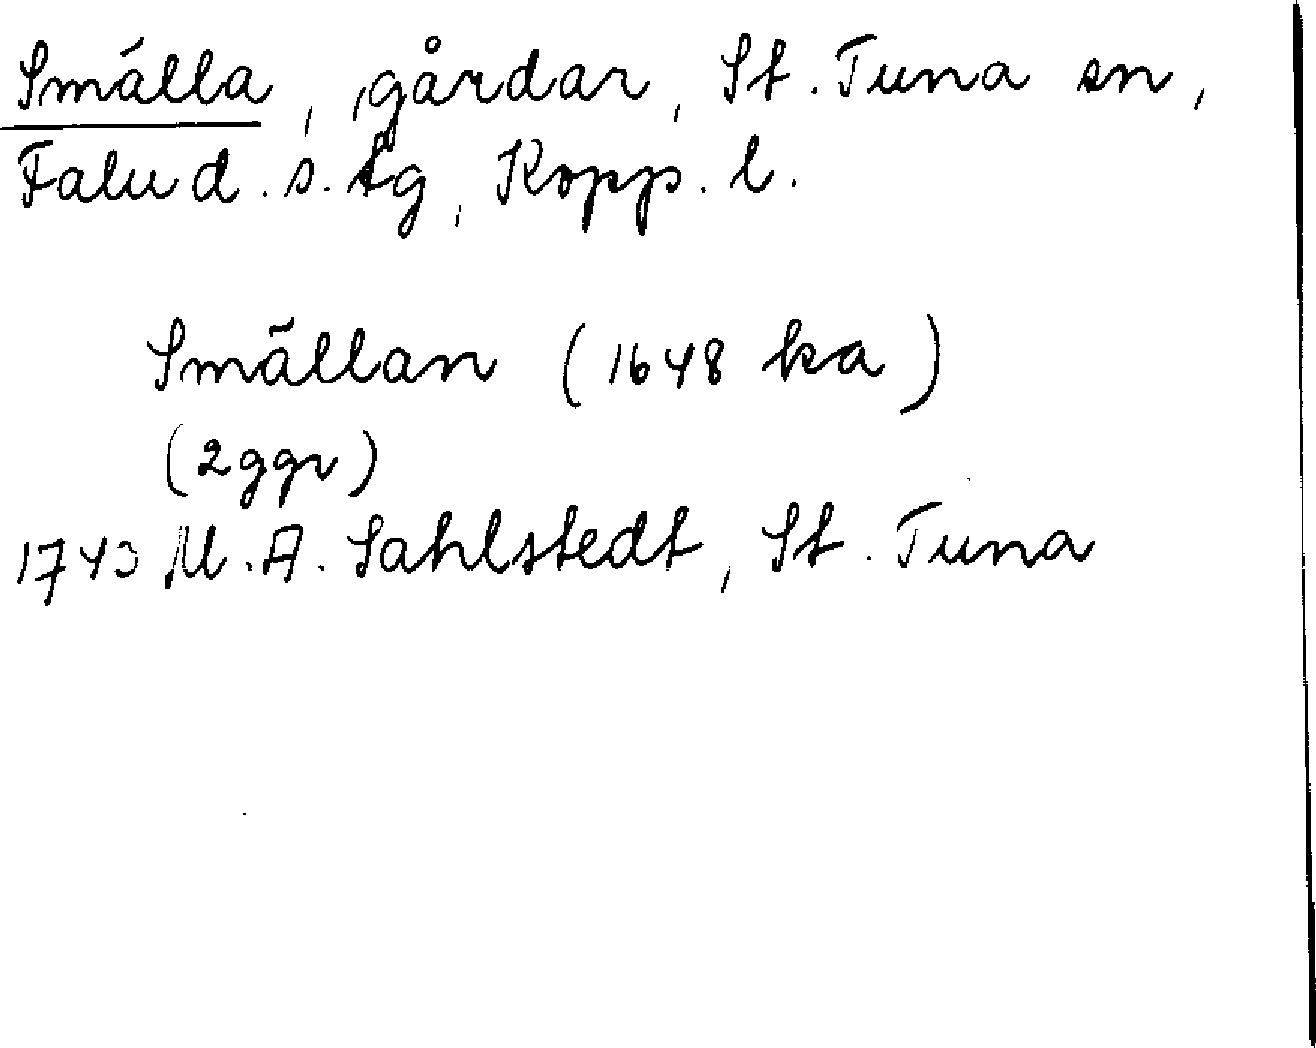 Smälla, gårdar, St. Tuna sn,
Falu d. s. tg, Kopp. l.
Smällan (1648 ka)
(2ggr)
1743 M. A. Sahlstedt, St. Tuna